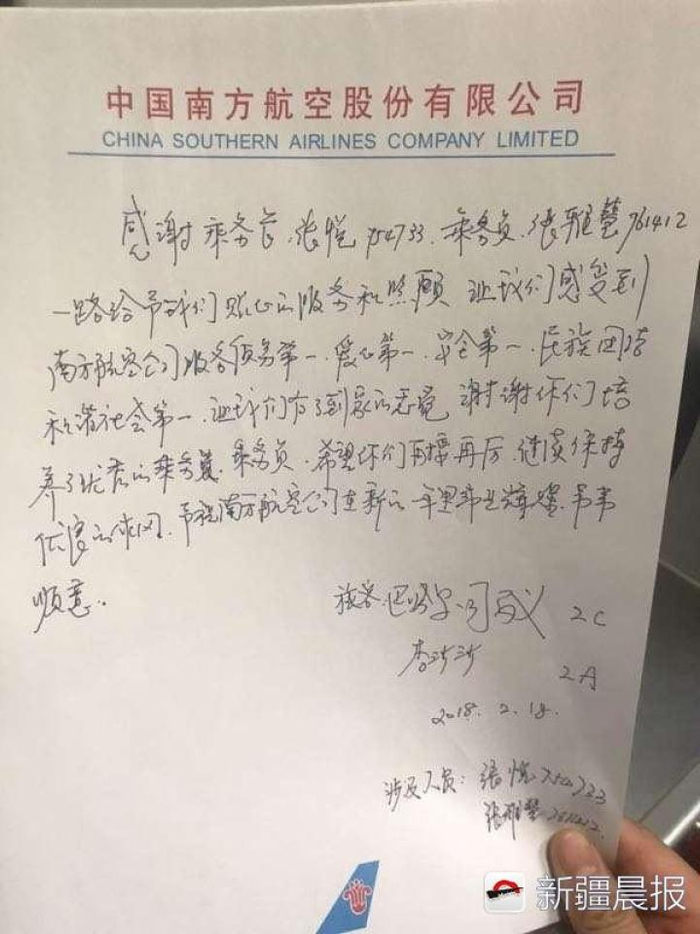 中国南方航空股份有限公司
CHINA SOUTHERN AIRLINES COMPANY LIMITED
感谢乘务长.张悦754733.乘务员.张雅慧761412
一路给予我们贴心的服务和照顾 让我们感受到
南方航空公司服务质量第一.爱心第一.安全第一.民族团结
和谐社会第一.让我们有了到家的感觉 谢谢你们培
养了优秀的乘务长.乘务员.希望你们再接再厉.继续保持
优良的作风.予祝南方航空公司在新的一年里事业辉煌.事事
顺意.
旅客.巴哈尔 2C
李沙沙 2A
2018.2.18.
涉及人员:张悦
张雅慧
新疆晨报